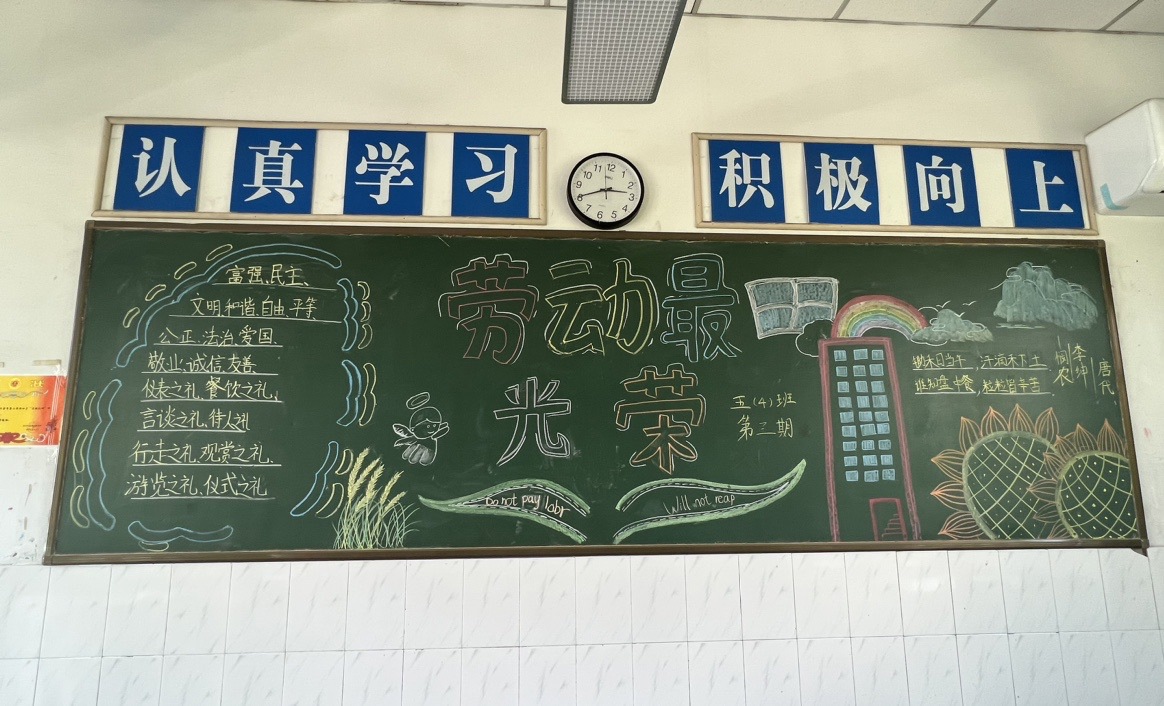 认真学习
积极向上
富强、民主、
文明、和谐、自由、平等
公正、法治、爱国、
敬业、诚信、友善
仪表之礼、餐饮之礼、
言谈之礼、待人之礼
行走之礼、观赏之礼、
游览之礼、仪式之礼
劳动最
光荣
五(4)班
第三期
Do not pay labr
Will not reap
悯农
李绅
唐代
锄禾日当午,汗滴禾下土
谁知盘中餐,粒粒皆辛苦
12
1
2
3
4
5
6
7
8
9
10
11